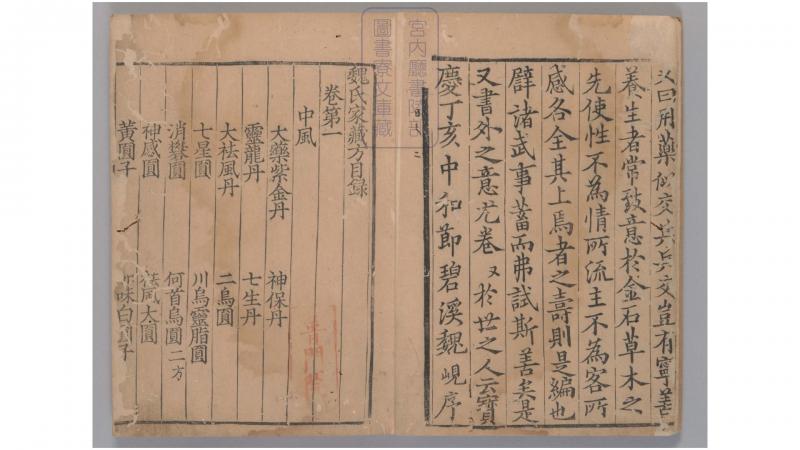 曰用藥似交兵兵交豈有寧善
養生者常致意於金石草木之
先使性不為情所流主不為客所
感各全其上焉者之壽則是編也
臂諸武事蓄而弗試斯善矣是
又書外之意尤卷〻於世之人云寶
慶丁亥中和節碧溪魏峴序
宮內廳書陵部
圖書寮文庫藏
魏氏家藏方目錄
卷第一
中風
大藥紫金丹 神保丹
靈龍丹 七生丹
大袪風丹 二烏圓
七星圓 川烏靈脂圓
消礬圓 何首烏圓二方
神感圓 袪風太圓
黃圓子 味白圓子
普門院